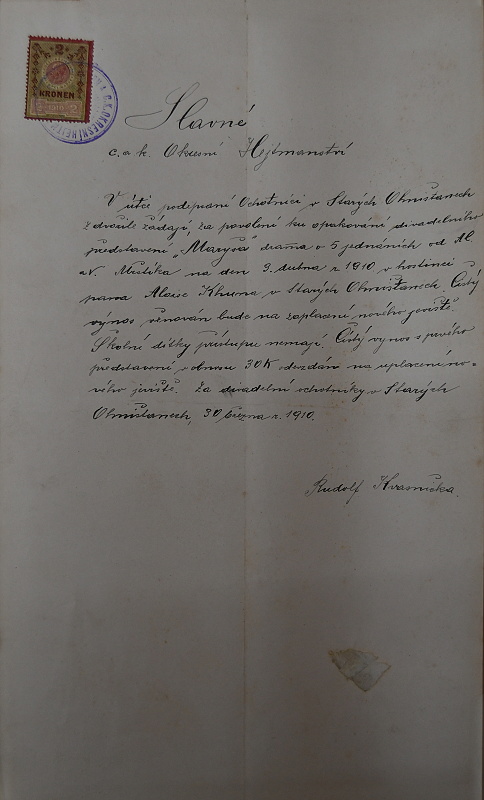 2
KRONEN
1910
C.K. OKRESNÍ HEJT
Slavné
c. a k. Okresní Hejtmanství
V úctě podepsaní Ochotníci v Starých Ohnišťanech
zdvořile žádají, za povolení ku opakování divadelního
představení „Maryša" drama o 5 jednáních od Al.
a V. Mrštíka na den 3. dubna r. 1910 v hostinci
pana Aloise Khuna v Starých Ohnišťanech. Čistý
výnos věnován bude na zaplacení nového jeviště.
Školní dítky přístupu nemají. Čistý výnos s prvého
představení v obnosu 30 K odevzdán na zaplacení no-
vého jeviště. Za divadelní ochotníky v Starých
Ohnišťanech, 30 března r. 1910.
Rudolf Kvasnička.